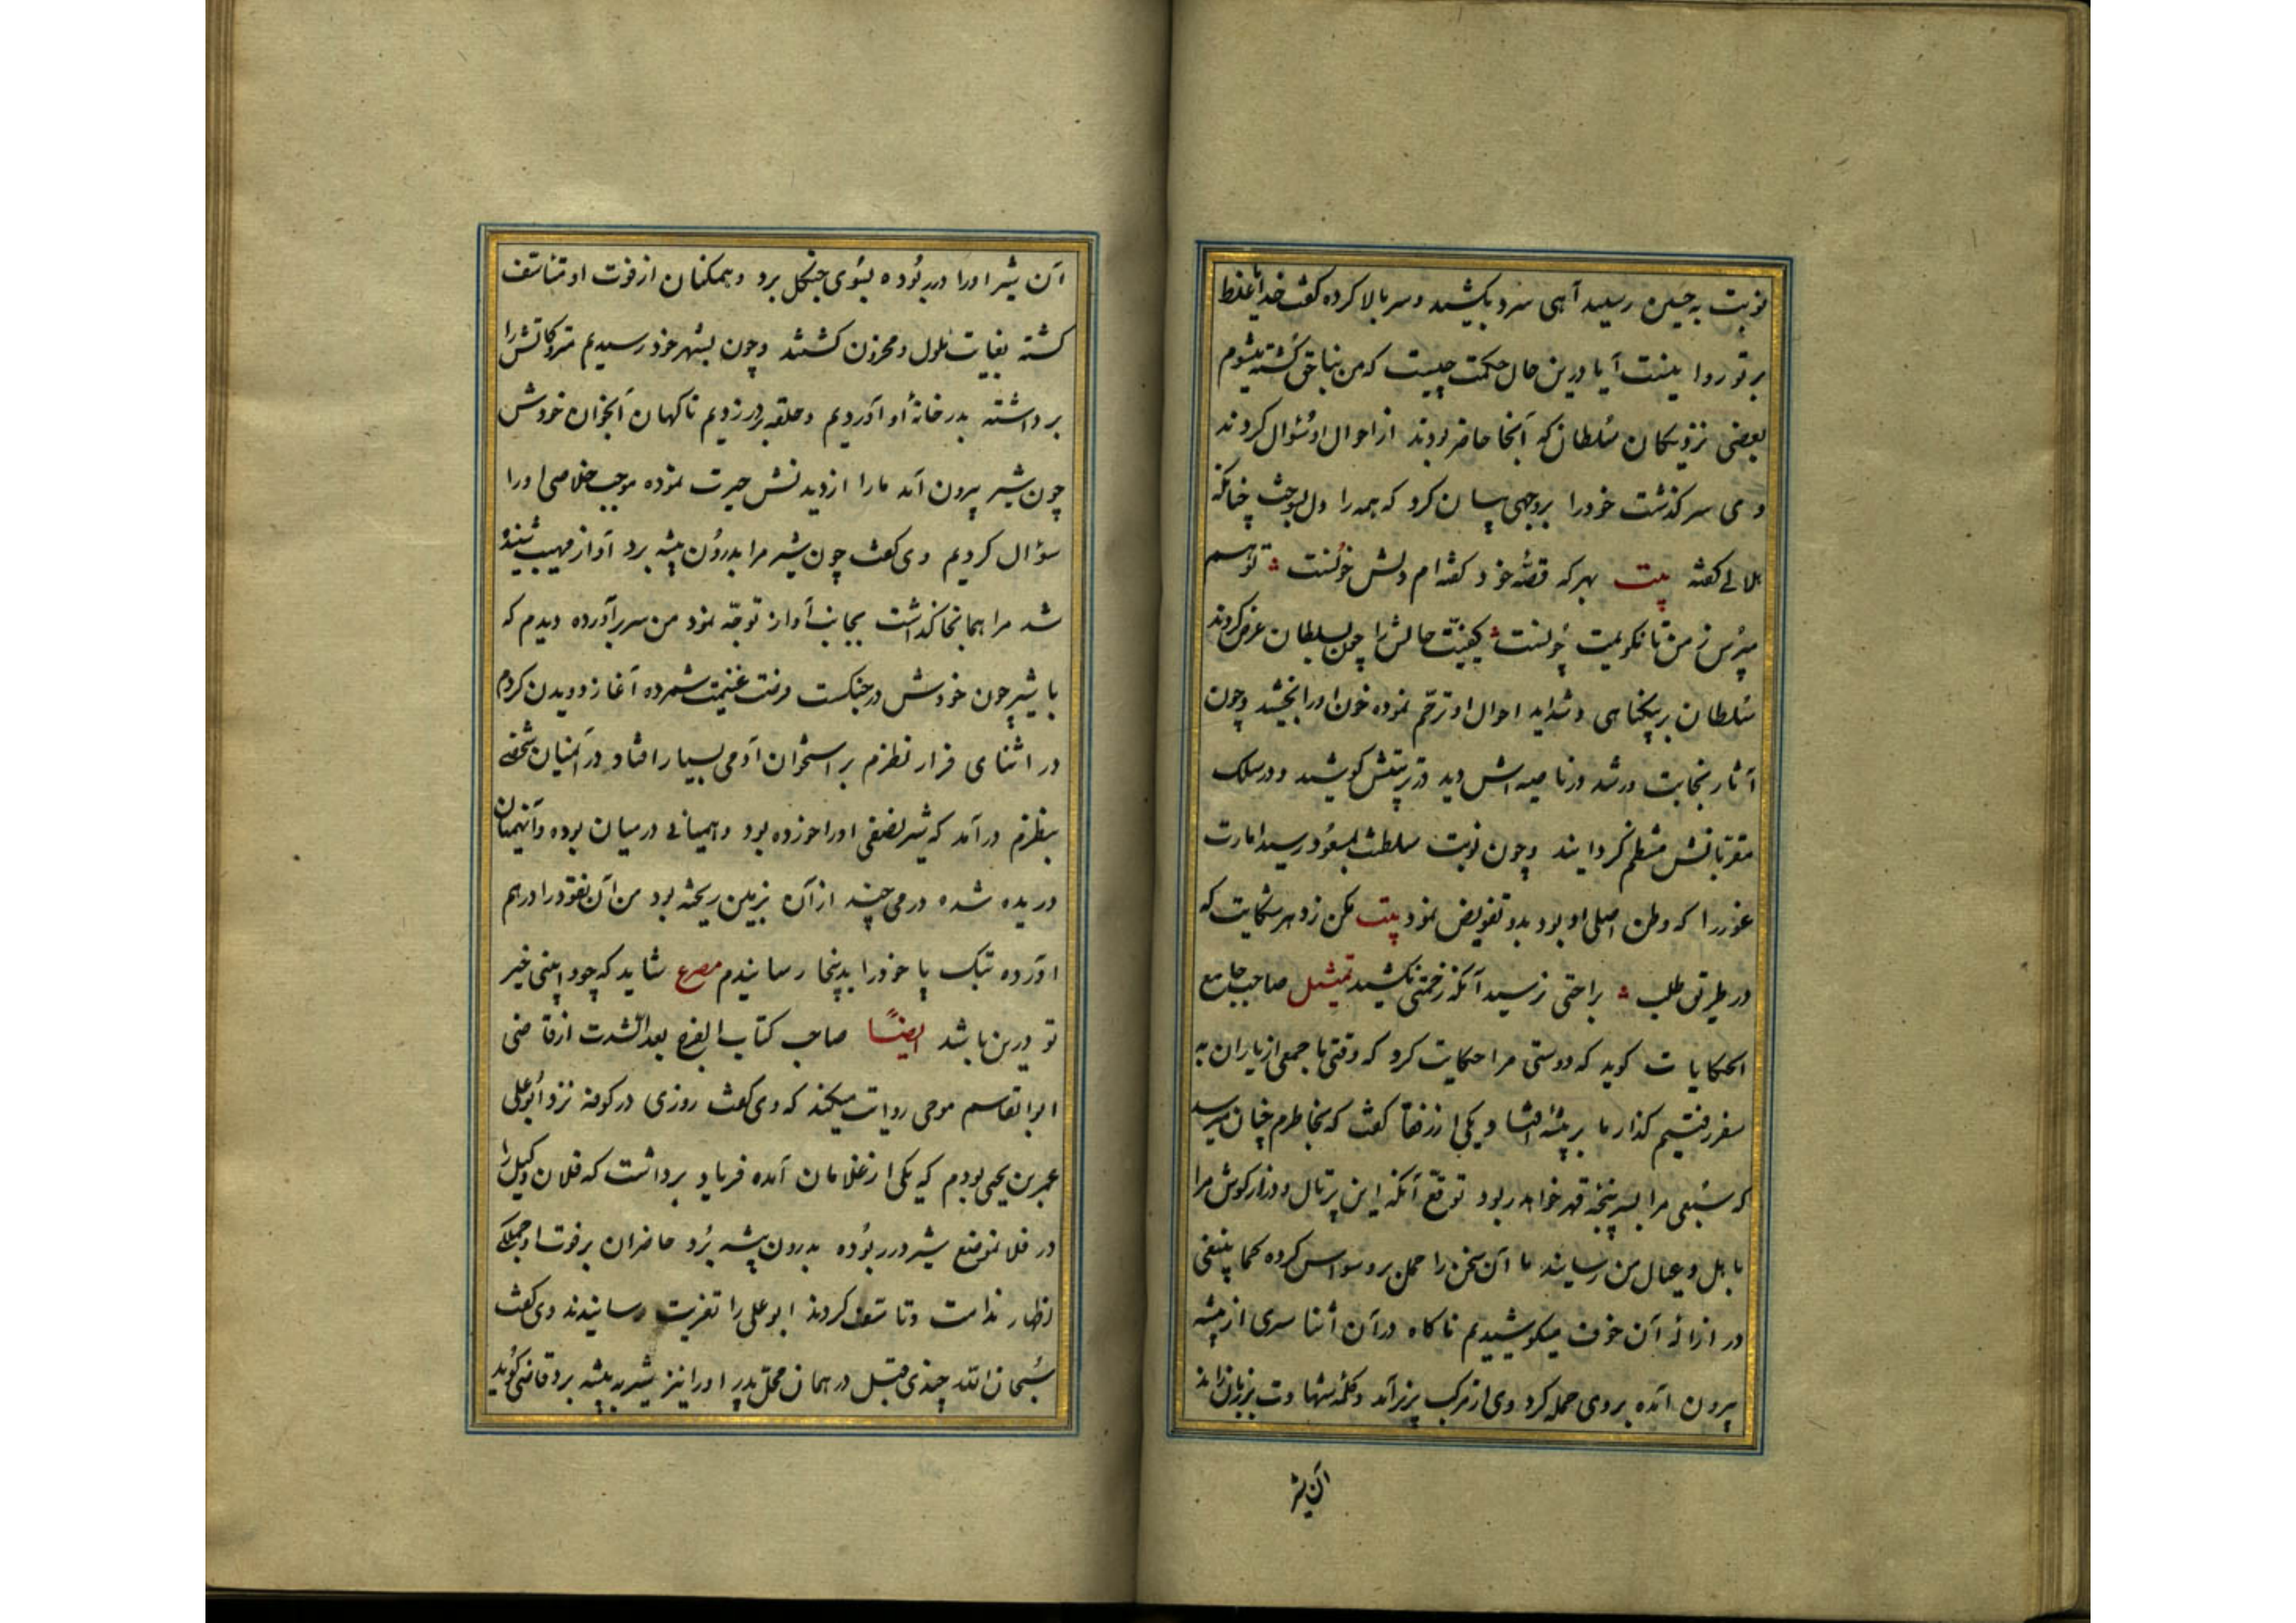 نوبت به حسین رسید آهی سرد بکشید و سر بالا کرده گفت خدایا غلط
بر تو روا نیست آیا درین حال حکمت چیست که من بناحق کشته میشوم
بعضی نزدیکان سلطان که آنجا حاضر بودند از احوال او سئوال کردند
وی سر کذشت خود را بر وجهی بیان کرد که همه را دل بسوخت چنانکه
هلالی گفته بیت بهر که قصّه خود گفته ام دلش خونست تو هم
مپرس ز من تا نگویمت چونست کیفیّت حالش را چون بسلطان عرض کردند
سلطان بر بیکناهی و شداید احوال او ترحّم نموده خون او را بخشید و چون
آثار نجابت و رشد در ناصیه اش دید در تربیتش کوشید و در سلک
مقرّبانش منتظم کردانید و چون نوبت سلطنت بمسعود رسید امارت
غور را که وطن اصلی او بود بدو تفویض نمود بیت مکن ز دهر شکایت که
در طریق طلب براحتی نرسید آنکه زحمتی نکشید تمثیل صاحب جامع
الحکایات کوید که دوستی مرا حکایت کرد که وقتی با جمعی از یاران به
سفر رفتیم کذار ما بر بیشه افتاد یکی از رفقا گفت که بخاطرم چنان میرسد
که سَبُعی مرا بسر پنجه قهر خواهد ربود توقّع آنکه این پرتال و درازکوش مرا
باهل و عیال من رسانید ما آن سخن را حمل بر وسواس کرده کما ینبغی
در ازاله آن خوف میکوشیدیم ناکاه در آن أثنا سری از بیشه
بیرون آمده بر وی حمله کرد وی از مرکب بزیر آمد و کلمه شهادت بر زبان راند
آن شیر
آن شیر او را در ربوده بسوی جنکل برد و همکنان از فوت او متأسّف
کشته بغایت ملول و محزون کشتند و چون بشهر خود رسیدیم متروکاتش را
برداشته بدر خانهٔ او آوردیم و حلقه بر در زدیم ناکهان آنجوان خودش
چون شیر بیرون آمد ما را از دیدنش حیرت نموده موجب خلاصی او را
سؤال کردیم وی گفت چون شیر مرا بدرون بیشه برد آواز مهیب شنیده
شد مرا همانجا گذاشت بجانب آواز توجّه نمود من سر برآورده دیدم که
با شیر چون خودش در جنکست فرصت غنیمت شمرده آغاز دویدن کردم
در اثنای فرار نظرم بر استخوان آدمی بسیار افتاد در آنمیان شخصی
بنظرم درآمد که شیر نصفی او را خورده بود و همیانی در میان بوده و آنهمیان
دریده شده درمی چند از آن بزمین ریخته بود من آن نقود را در هم
آورده بتک پا خود را بدینجا رسانیدم مصرع شاید که چو وابینی خیر
تو درین باشد ایضًا صاحب کتاب الفرج بعد الشدت از قاضی
ابوالقاسم موحی روایت میکند که وی گفت روزی در کوفه نزد ابوعلی
عمر بن یحیی بودم که یکی از غلامان آمده فریاد برداشت که فلان وکیل را
در فلانموضع شیر در ربوده بدرون بیشه بُرد حاضران بر فوت او جملکی
اظهار ندامت و تاسّف کردند ابوعلی را تعزیت رسانیدند وی گفت
سُبحان الله چندی قبل در همان محل پدر او را نیز شیر به بیشه برد قاضی کوید